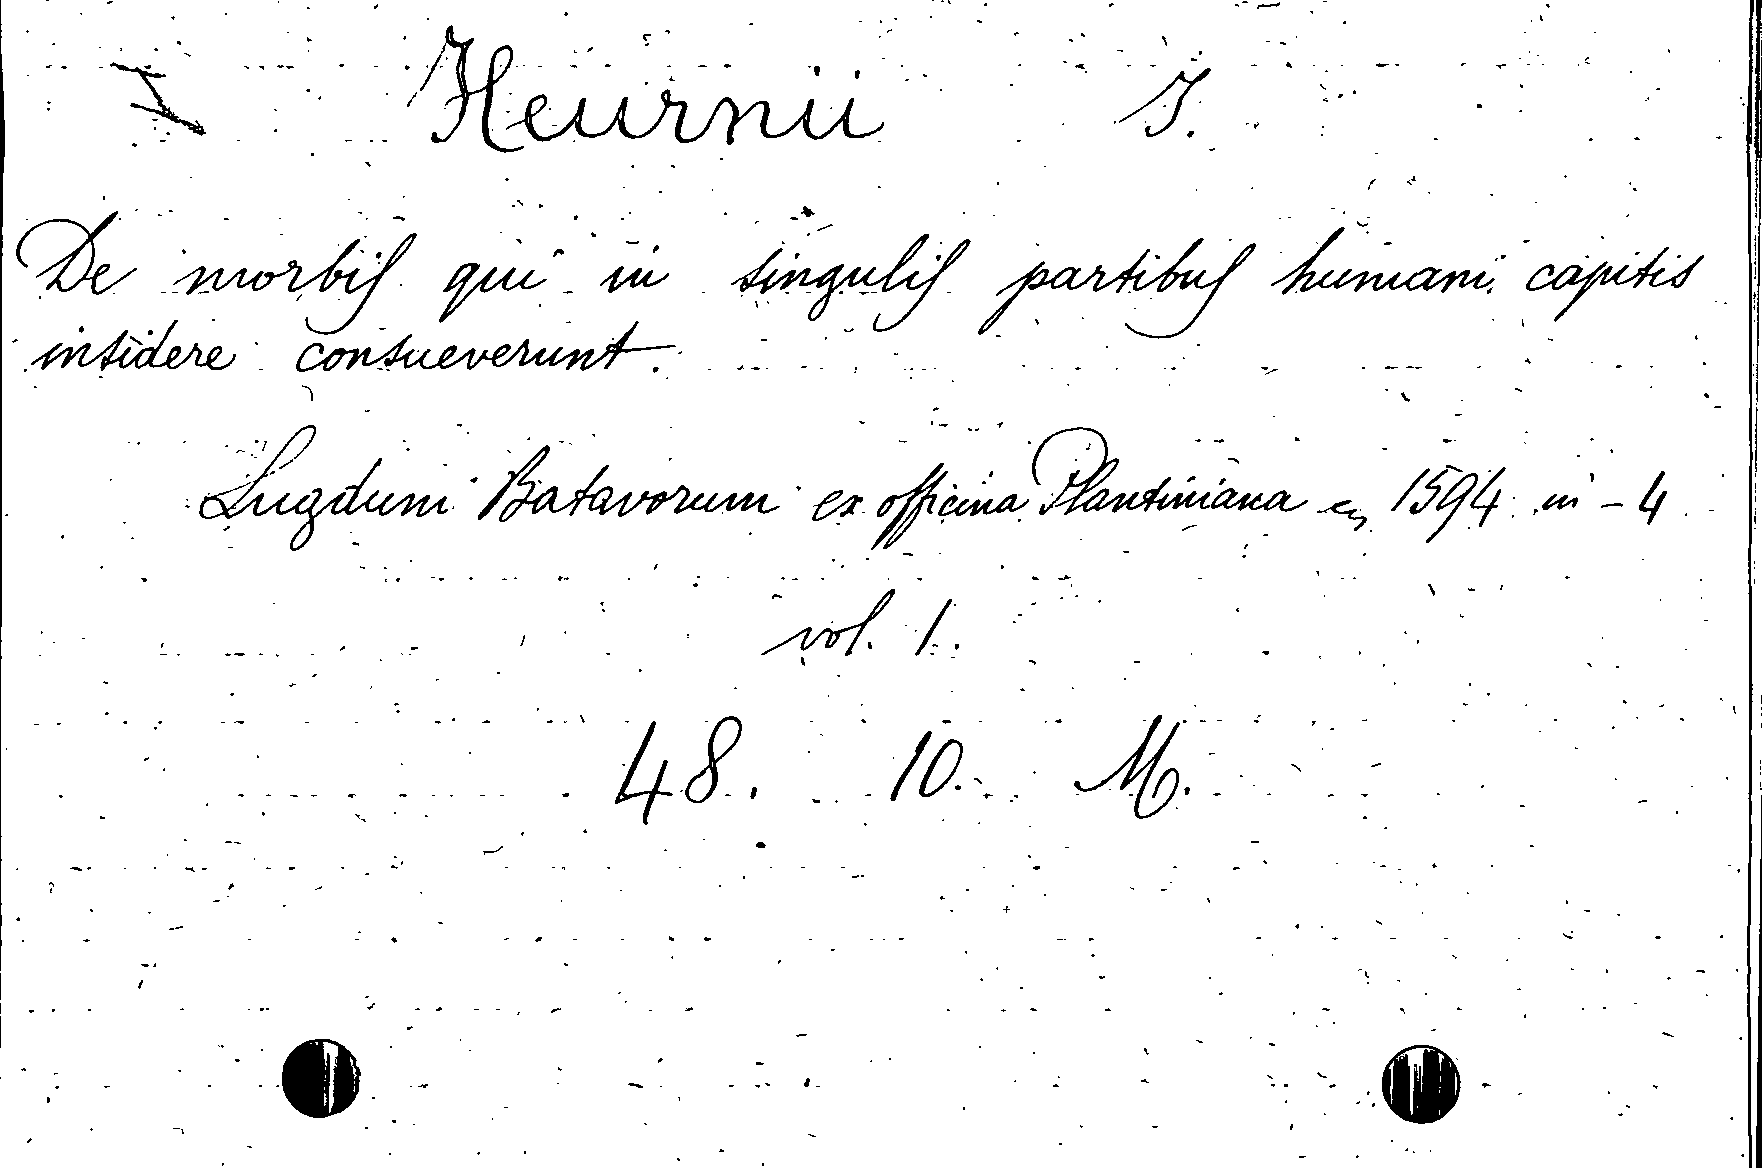 I Heurnii J.
De morbis qui in singulis partibus humani capitis
insidere consueverunt.
Lugduni Batavorum ex officina Plantiniana en 1594 in-4
vol. 1.
48. 10. M.